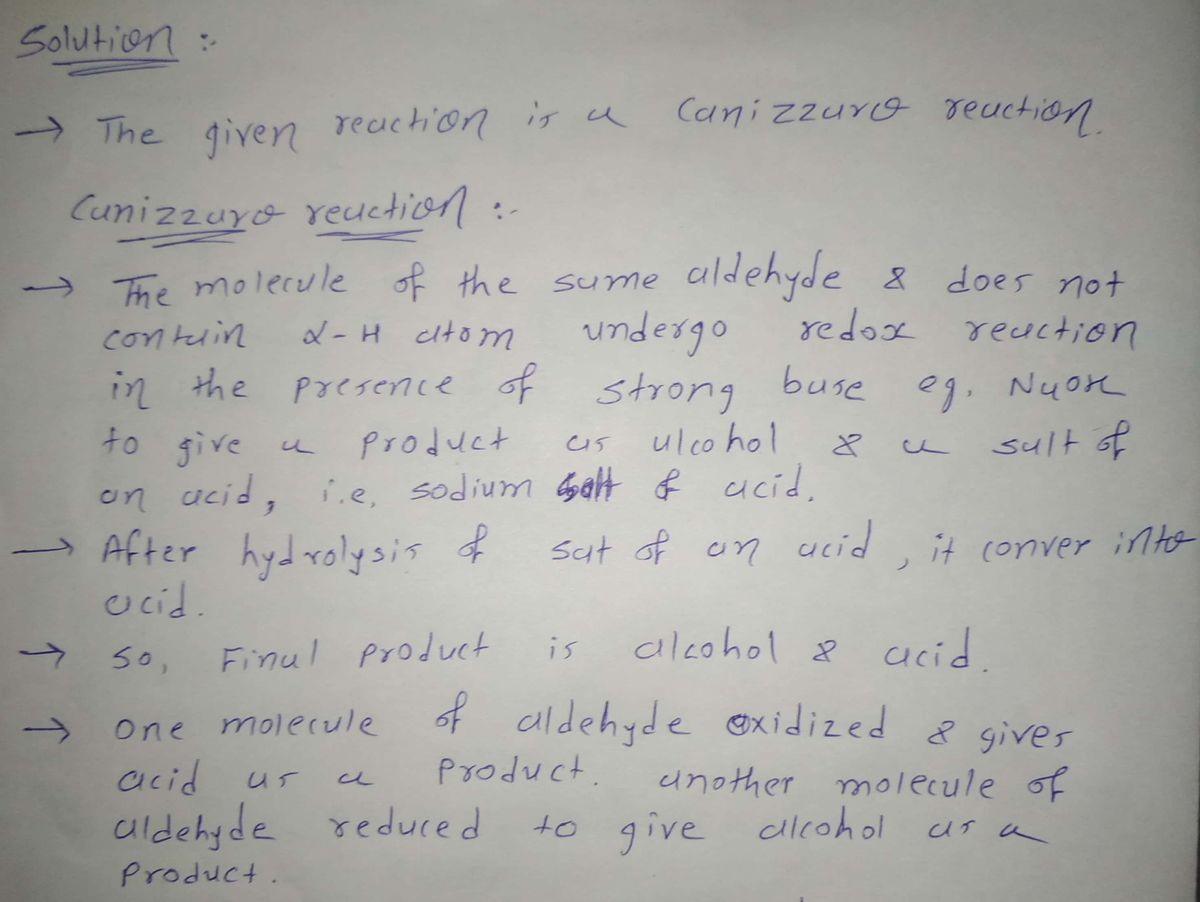 Solution :-
→ The given reaction is a Canizzaro reaction.
Canizzaro reaction :-
→ The molecule of the same aldehyde & does not
contain α-H atom undergo redox reaction
in the presence of strong base eg. NaOH
to give a product as alcohol & a salt of
an acid, i.e. sodium salt of acid.
→ After hydrolysis of sat of an acid, it conver into
acid.
→ So, Final product is alcohol & acid.
→ One molecule of aldehyde oxidized & gives
acid as a product. another molecule of
aldehyde reduced to give alcohol as a
product.